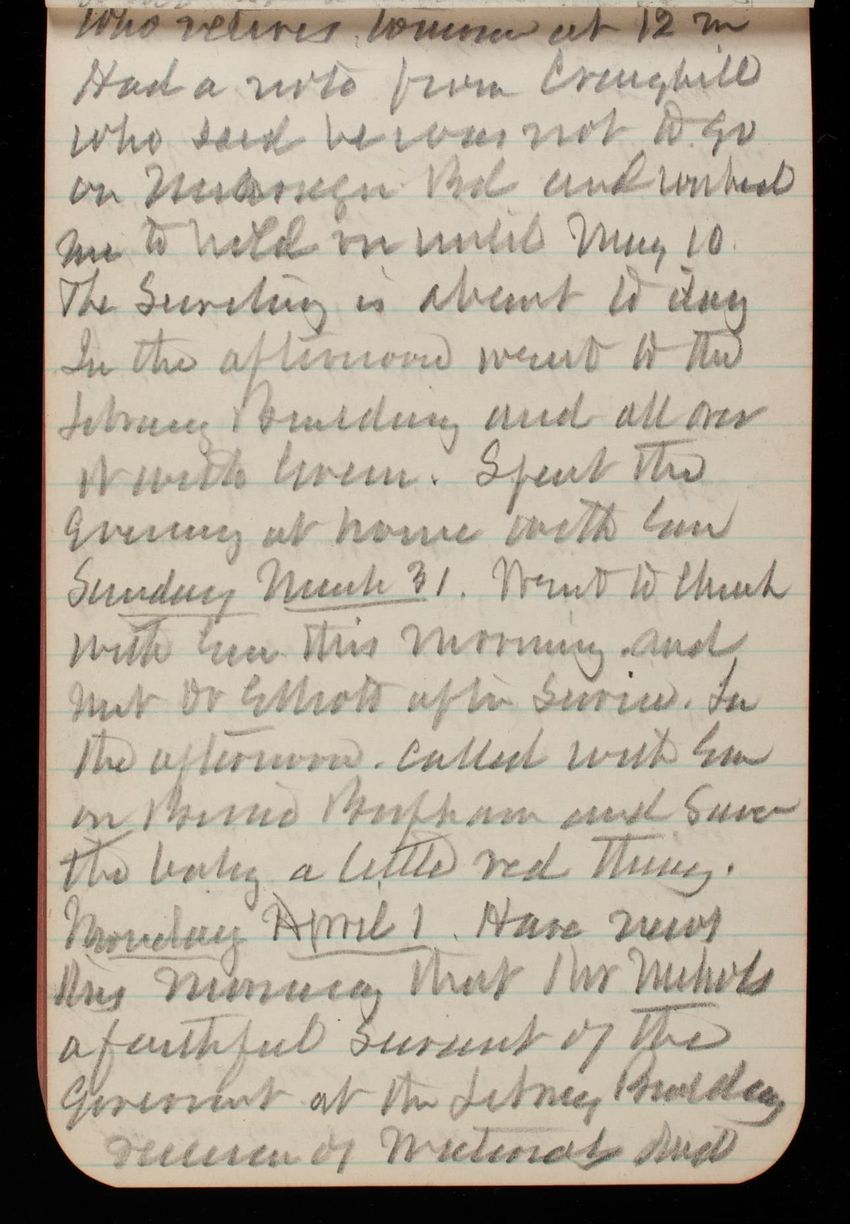 who retires tomorrow at 12 m
Had a note from Craighill
who said he was not to go
on Nicaragua Bd and wanted
me to hold on until May 10.
The Secretary is absent to day
In the afternoon went to the
Library Building and all over
it with Green. Spent the
Evening at home with Em
Sunday March 31. Went to Church
with Em this morning. and
met Dr Elliott after Service. In
the afternoon. called with Em
on and Saw
the baby a little red thing.
Monday April 1. Have news
this morning that Mr Nichols
a faithful servant of the
Goverment at the Library Building
of died